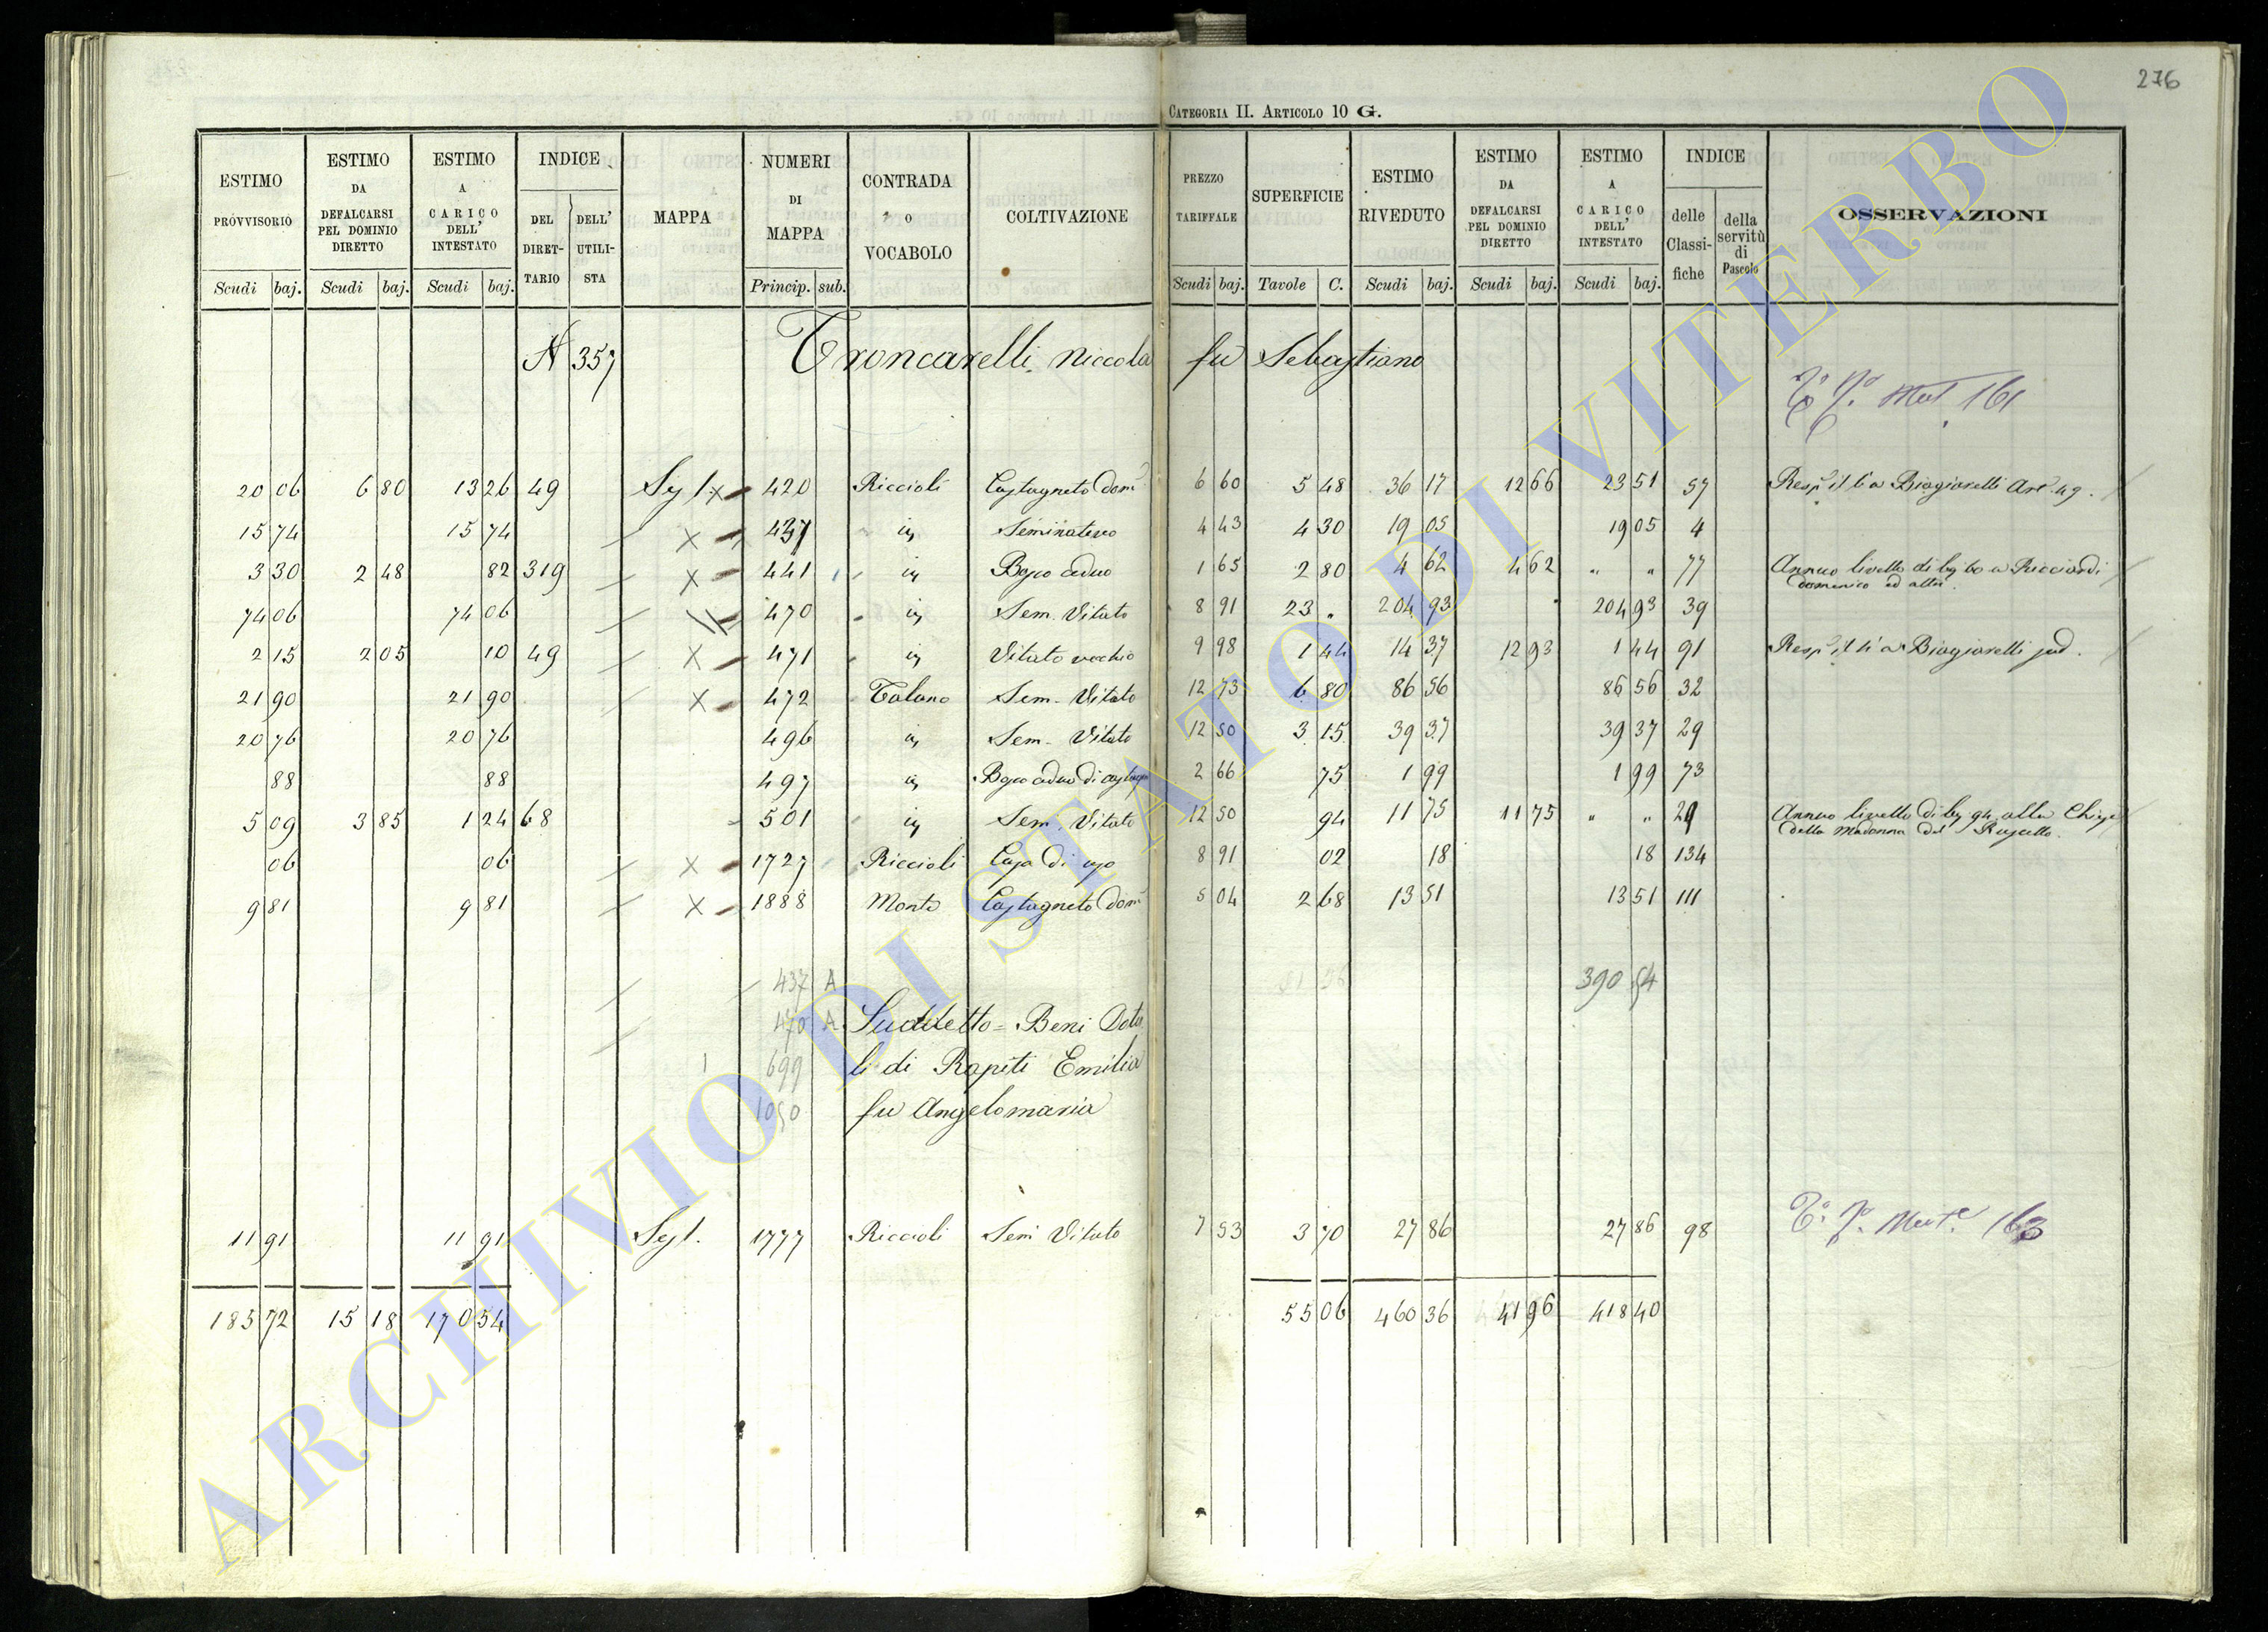 276
CATEGORIA II. ARTICOLO 10 G.
ESTIMO PROVVISORIO Scudi baj.
ESTIMO DA DEFALCARSI PEL DOMINIO DIRETTO Scudi baj.
ESTIMO A CARICO DELL' INTESTATO Scudi baj.
INDICE DEL DIRETTARIO DELL' UTILISTA
MAPPA
NUMERI DI MAPPA Princip. sub.
CONTRADA O VOCABOLO
COLTIVAZIONE
PREZZO TARIFFALE Scudi baj.
SUPERFICIE Tavole C.
ESTIMO RIVEDUTO Scudi baj.
ESTIMO DA DEFALCARSI PEL DOMINIO DIRETTO Scudi baj.
ESTIMO A CARICO DELL' INTESTATO Scudi baj.
INDICE delle Classifiche della servitù di Pascolo
OSSERVAZIONI
N 357 Troncarelli Niccola fu Sebastiano
Mut 161
20 06 6 80 13 26 49 Sez 1 x 420 Riccioli Castagneto Dom 6 60 5 48 36 17 12 66 23 51 57 Biagiarelli Art. 49.
15 74 15 74 x 437 Seminativo 4 43 4 30 19 05 19 05 4
3 30 2 48 82 319 x 441 Bosco ceduo 1 65 2 80 4 62 4 62 " " 77 Annuo livello di 60 a Ricciardi
Domenico ed altri.
74 06 74 06 470 Sem. Vitato 8 91 23 " 204 93 204 93 39
2 15 2 05 10 49 x 471 Vitato vecchio 9 98 1 44 14 37 12 93 1 44 91 Biagiarelli sud.
21 90 21 90 x 472 Talano Sem. Vitato 12 73 6 80 86 56 86 56 32
20 76 20 76 496 Sem. Vitato 12 50 3 15 39 37 39 37 29
88 88 497 Bosco ceduo di 2 66 75 1 99 1 99 73
5 09 3 85 1 24 68 501 Sem. Vitato 12 50 94 11 75 11 75 " " 29 Annuo livello di 94 alla Chiesa
della Madonna del Ruscello.
06 06 x 1727 Riccioli Casa di uso 8 91 02 18 18 134
9 81 9 81 x 1888 Monte Castagneto Dom 5 04 2 68 13 51 13 51 111
437 A 51 36 390 54
470 A Suddetto = Beni Dota
699 li di Rapiti Emilia
1050 fu Angelomaria
11 91 11 91 Sez 1. 1777 Riccioli Sem Vitato 7 53 3 70 27 86 27 86 98 Mut. 163
185 72 15 18 170 54 55 06 460 36 41 96 418 40
ARCHIVIO DI STATO DI VITERBO